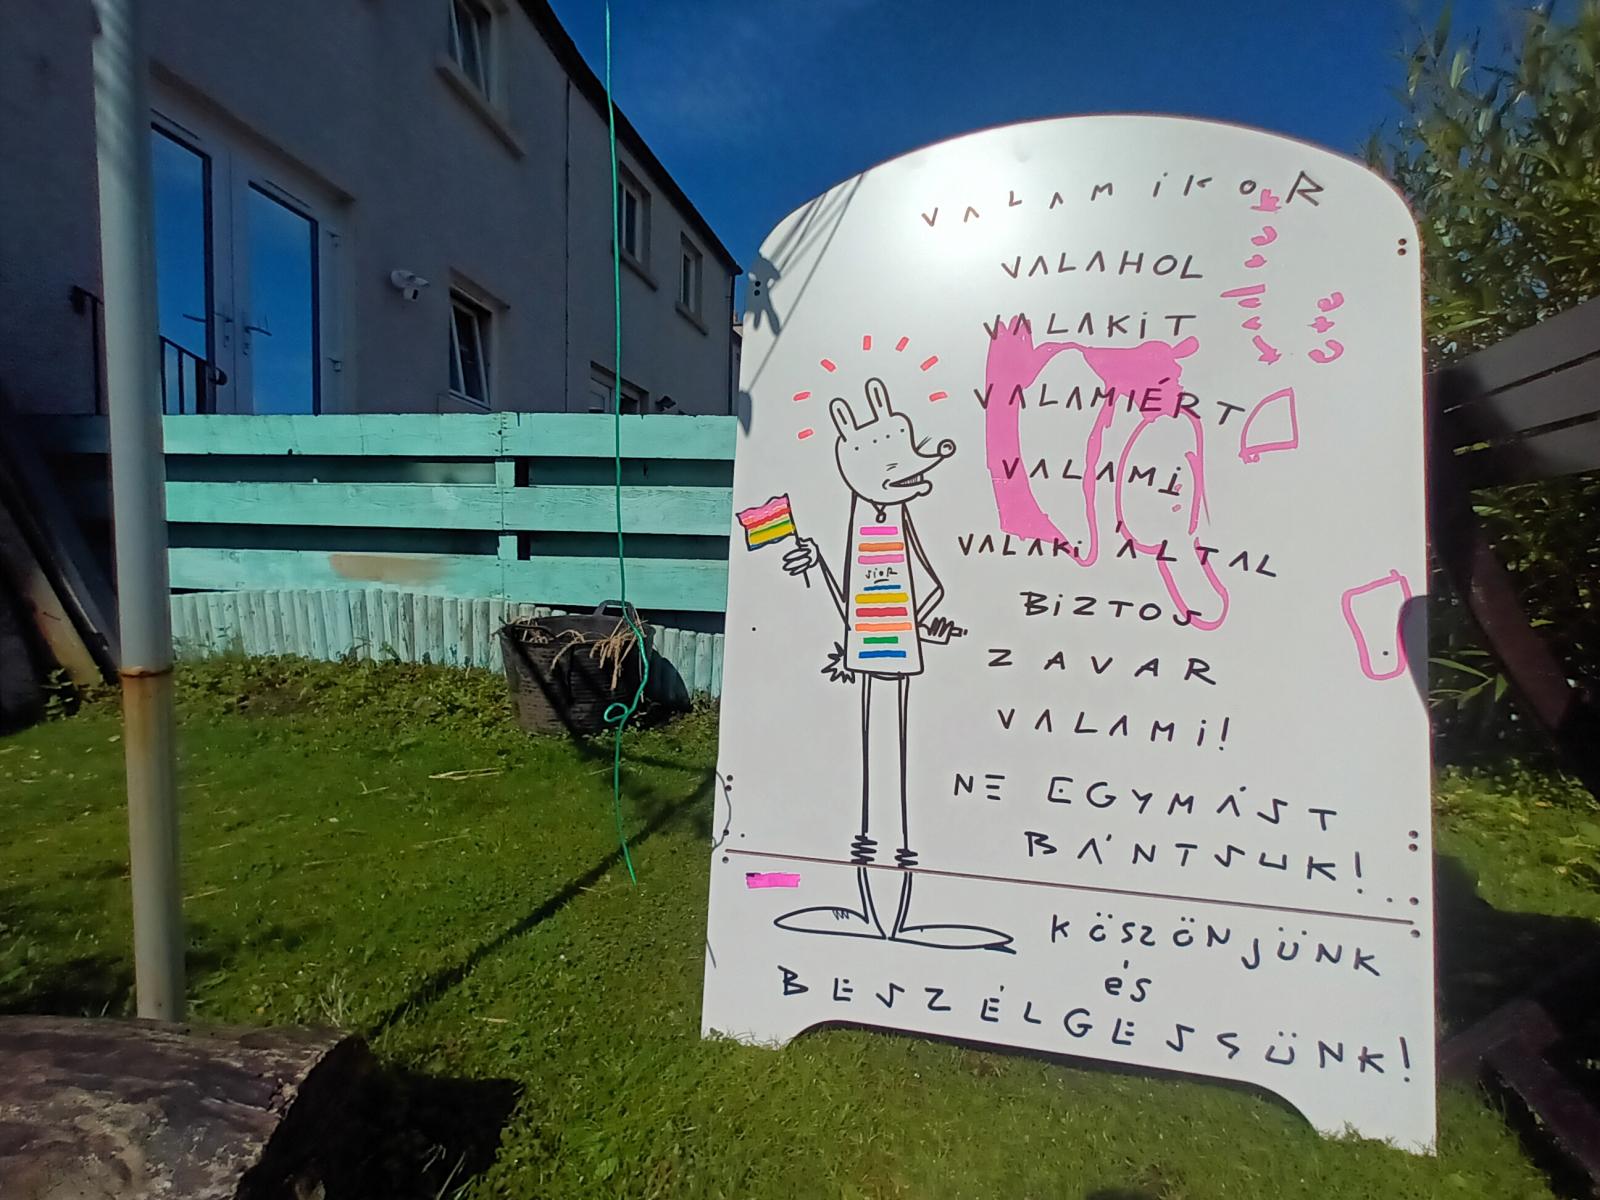 VALAMiKOR
VALAHOL
VALAKiT
VALAMIÉRT
VALAMi
VALAKi ÁLTAL
BiZTOS
ZAVAR
VALAMi!
NE EGYMÁST
BÁNTSUK!
KÖSZÖNJÜNK
éS
BESZÉLGESSÜNK!